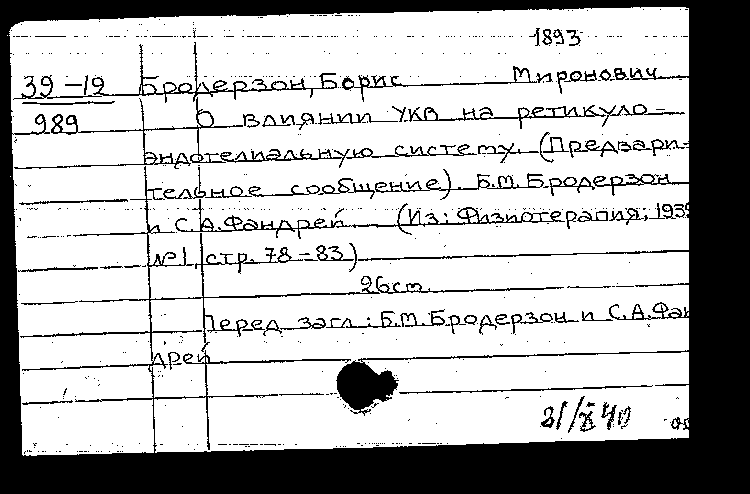 1893
39-19 Бродерзон, Борис Миронович
989 О влиянии УКВ на ретикуло-
эндотелиальную систему. (Предвари-
тельное сообщение). Б.М. Бродерзон
и С.А. Фандрей. (Из: Физиотерапия; 1939
№ 1, стр. 78-83)
26cm.
Перед загл: Б.М. Бродерзон и С.А. Фан
дрей
31/X 40